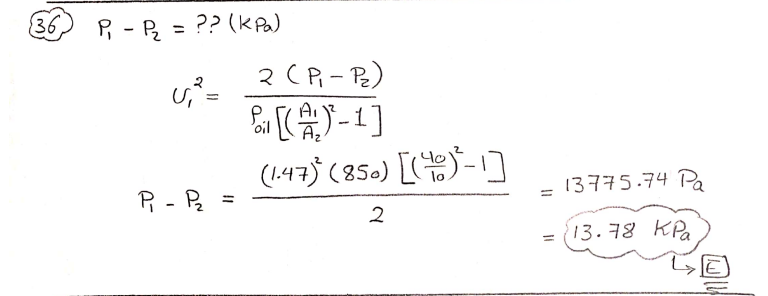 36 P₁ - P₂ = ?? (KPa)
v₁² = 2 (P₁ - P₂) / ρoil [(A₁/A₂)² - 1]
P₁ - P₂ = (1.47)² (850) [(40/10)² - 1] / 2 = 13775.74 Pa
= 13.78 KPa
↳ E